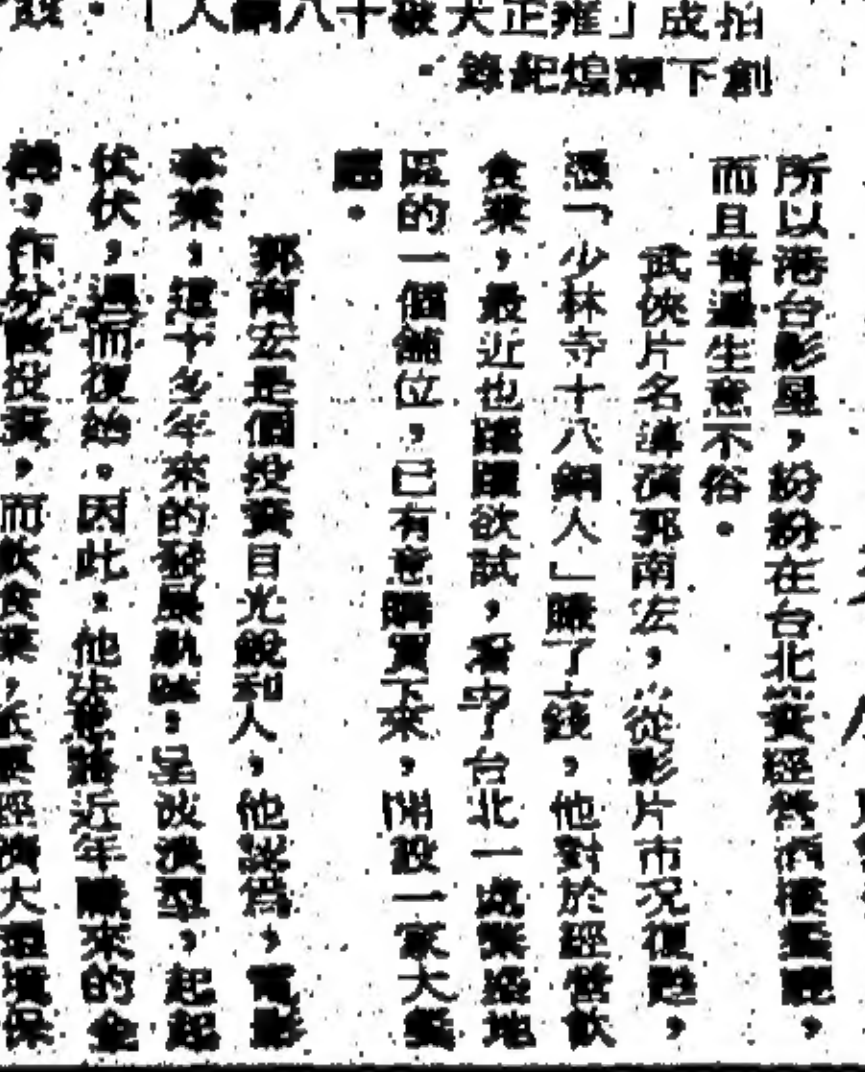 拍成「雍正大破十八銅人」。
創下輝煌紀錄。
所以港台影星，紛紛在台北投資經營酒樓餐廳，
而且普遍生意不俗。
武俠片名導演郭南宏，從影片市況復甦，
憑「少林寺十八銅人」賺了大錢，他對於經營飲
食業，最近也躍躍欲試，看中了台北一處繁盛地
區的一個舖位，已有意購買下來，開設一家大餐
廳。
郭南宏是個投資目光銳利人，他認為，電影
事業，這十多年來的發展軌跡，呈波浪型，起起
伏伏，週而復始。因此，他決意將近年賺來的金
錢，作分散投資，而飲食業，